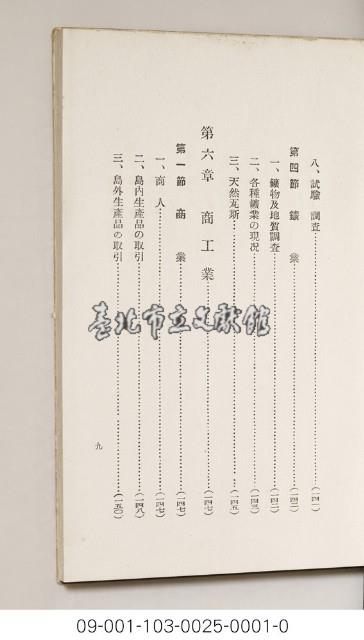 八、試驗調査……(一四一)
第四節 鑛業……(一四二)
一、鑛物及地質調査……(一四二)
二、各種鑛業の現況……(一四三)
三、天然瓦斯……(一四五)
第六章 商工業……(一四七)
第一節 商業……(一四七)
一、商人……(一四七)
二、島內生產品の取引……(一四八)
三、島外生產品の取引……(一五〇)
九
臺北市立文獻館
09-001-103-0025-0001-0